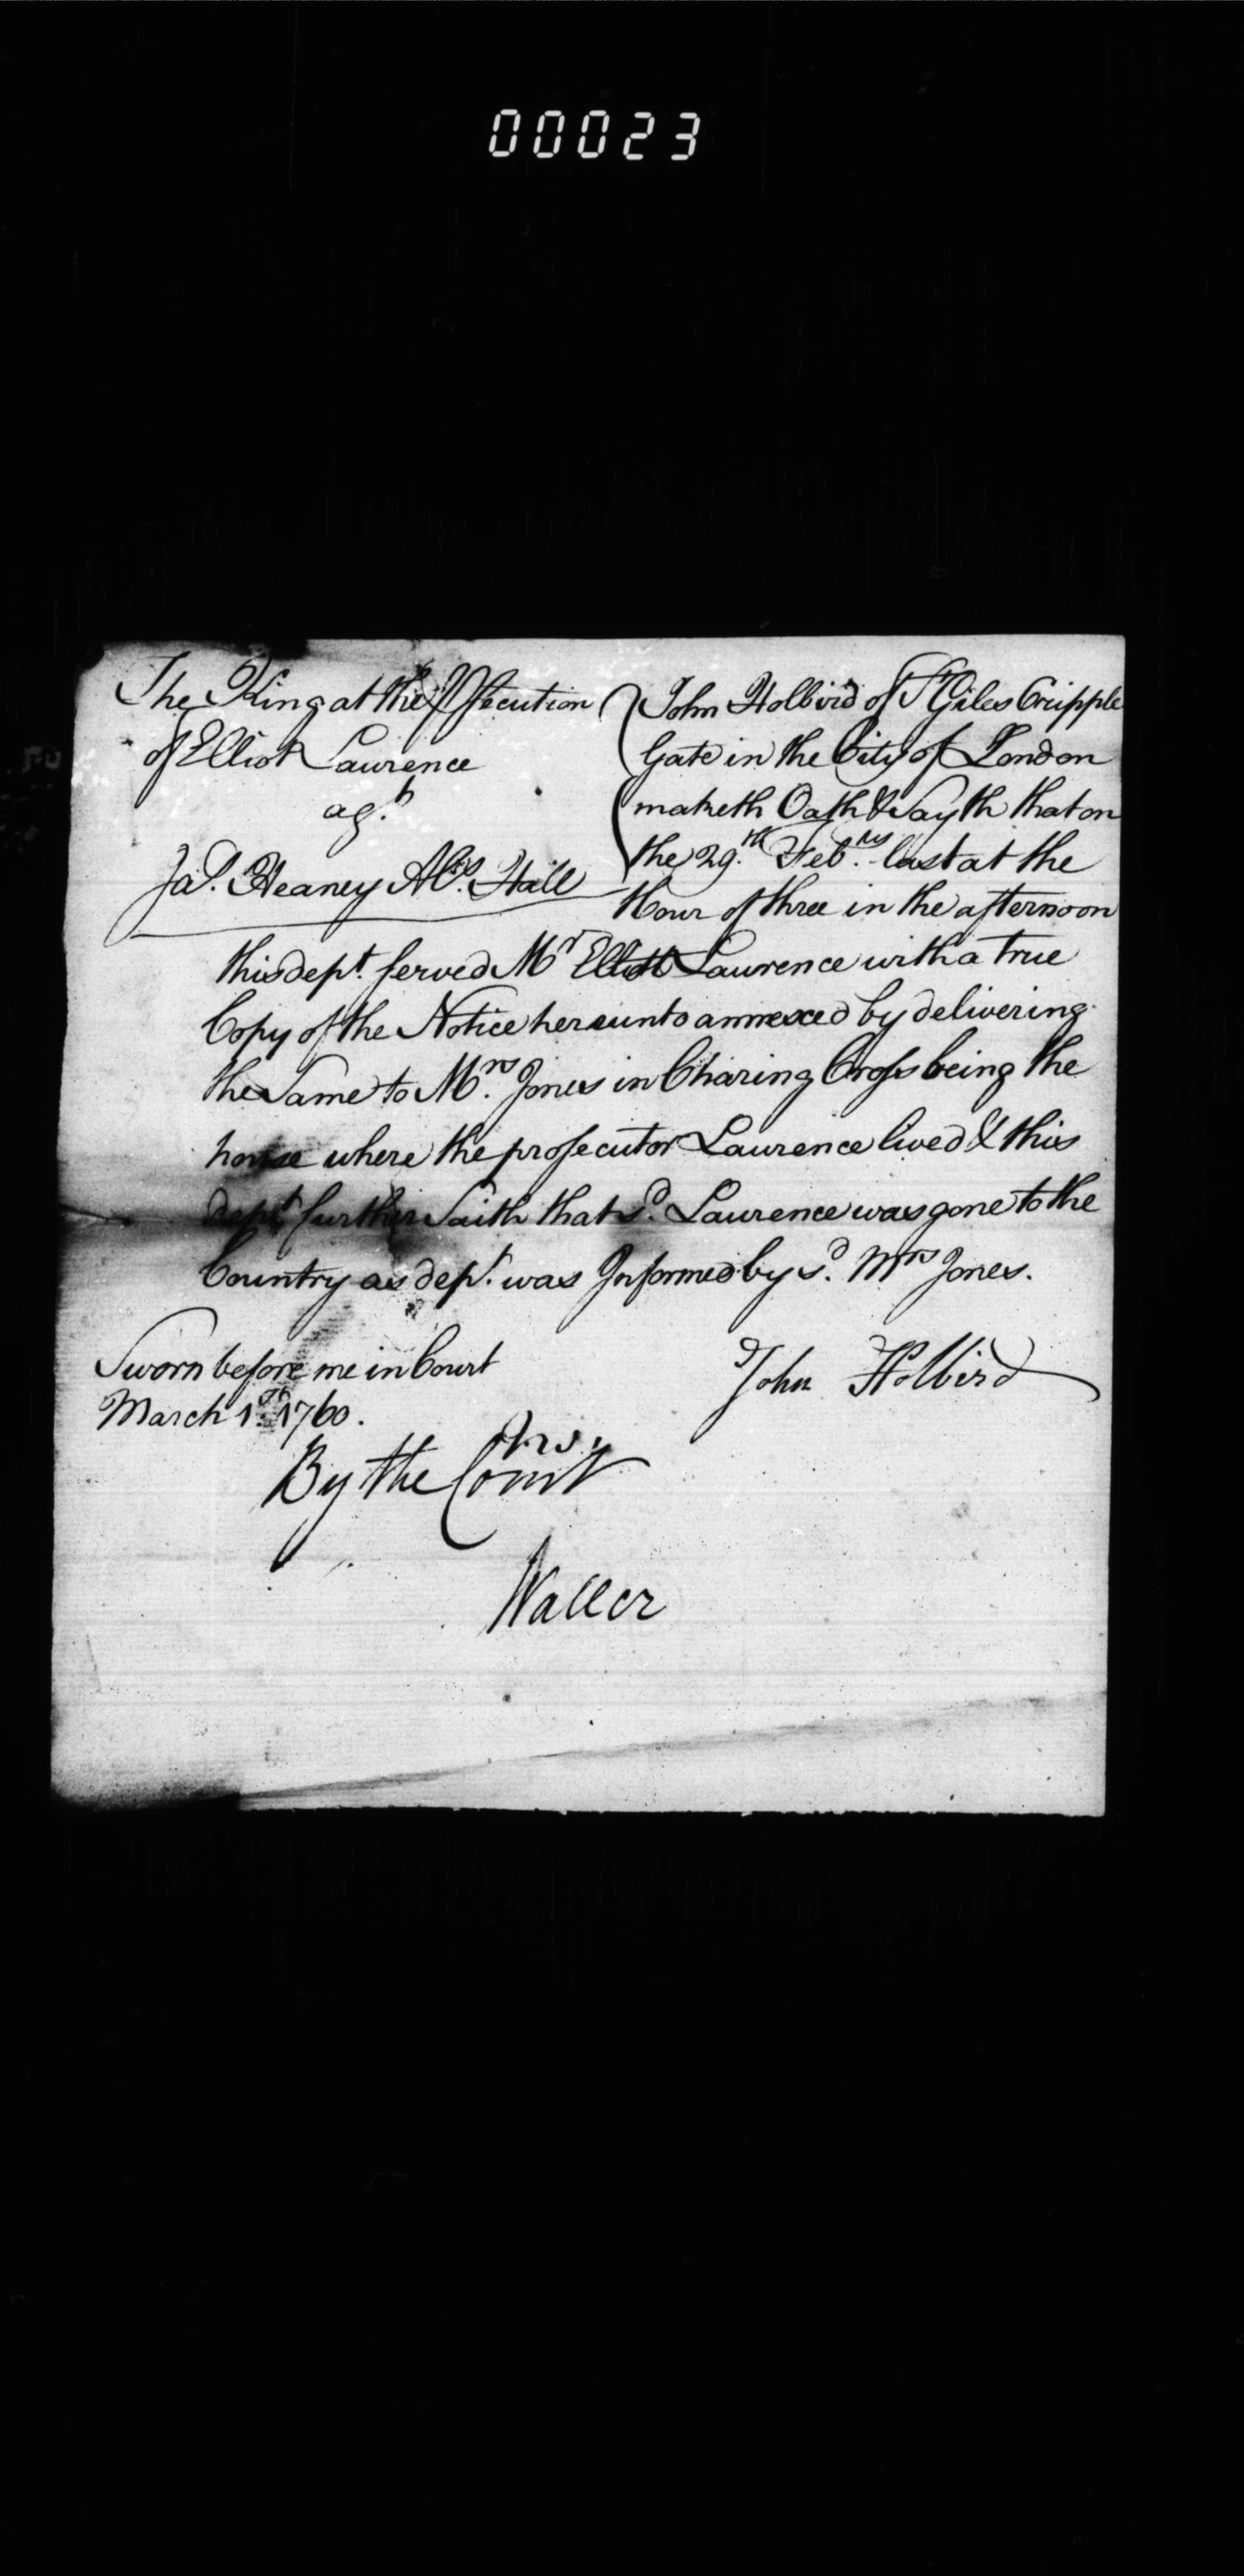 00023
The King at the Psecution
of Elliot Laurence
agt.
Jas. Heaney Als. Hall
John Holbird of St Giles Cripple
Gate in the City of London
maketh Oath & Sayth that on
the 29.th Feb.ry last at the
Hour of three in the afternoon
this dept. served Mr Elliott Laurence with a true
Copy of the Notice hereunto annexed by delivering
the Same to Mrs. Jones in Charing Cross being the
house where the prosecutor Laurence lived & this
dept. further Saith that sd. Laurence was gone to the
Country as dept. was Informed by sd. Mrs Jones.
Sworn before me in Court
March 1.st 1760.
John Holbird
By the Court
Waller